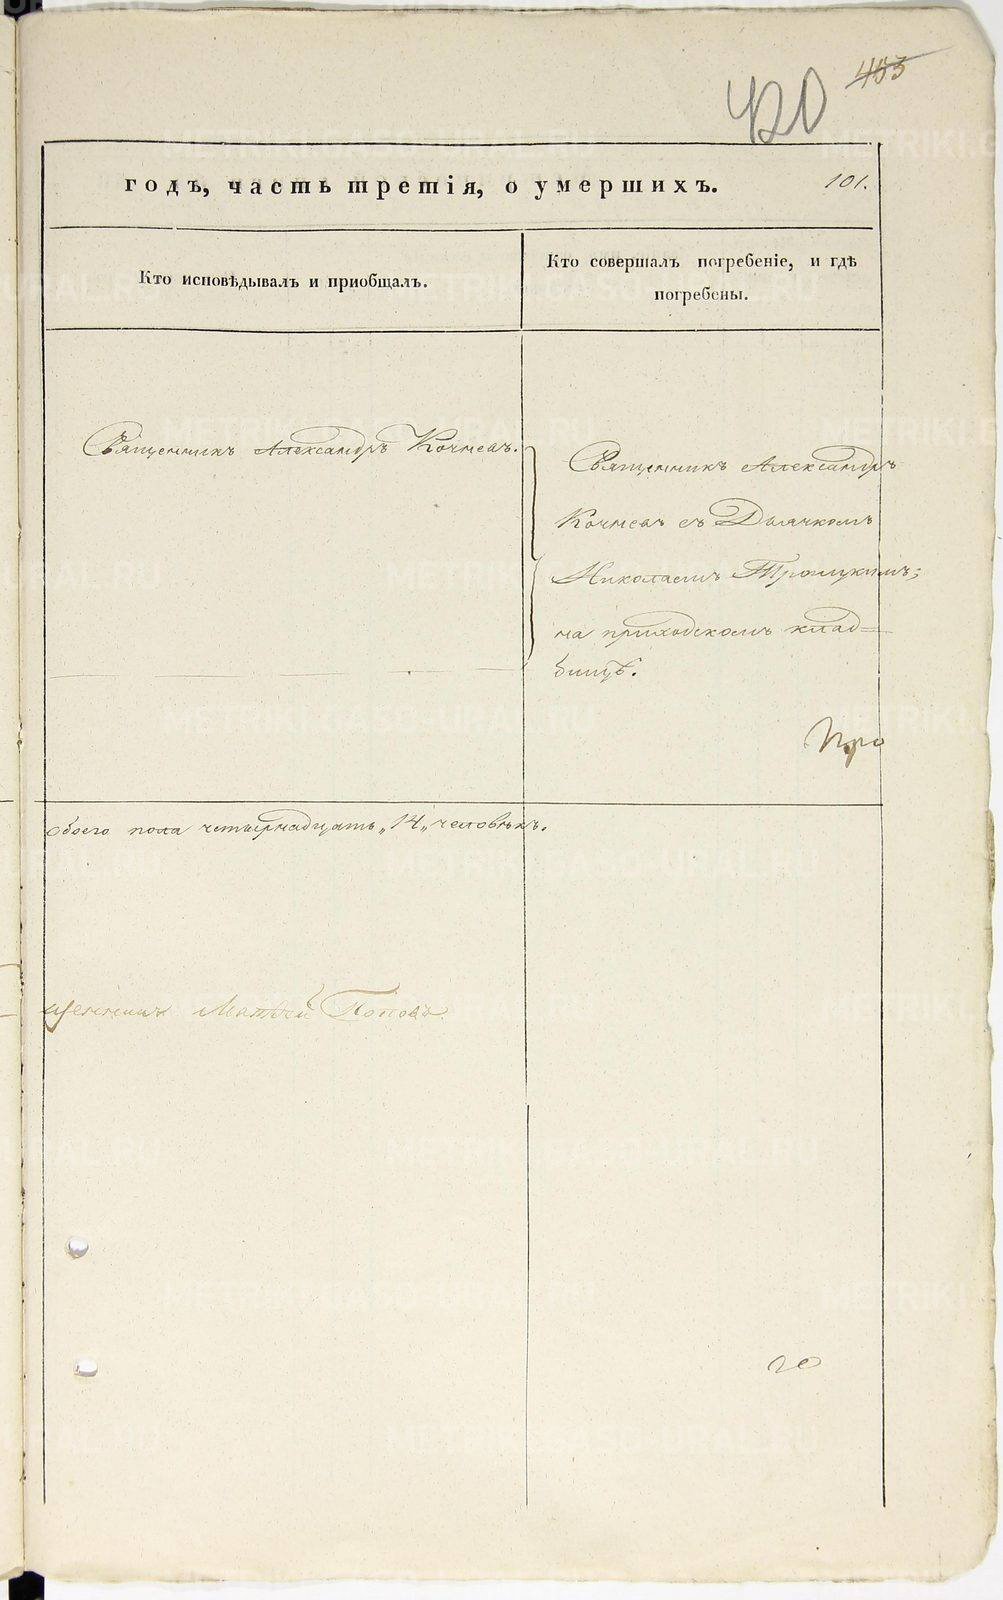 420 453
годъ, часть третія, о умершихъ. 101.
Кто исповѣдывалъ и пріобщалъ.
Кто совершалъ погребеніе, и гдѣ
погребены.
Священникъ Александръ Кочневъ.
Священникъ Александръ
Кочневъ съ Дьячкомъ
Николаемъ Троицкимъ;
на приходскомъ клад=
бищѣ.
Про
обоего пола четырнадцать „14„ человѣкъ.
щенникъ Матѳей Поповъ.
го